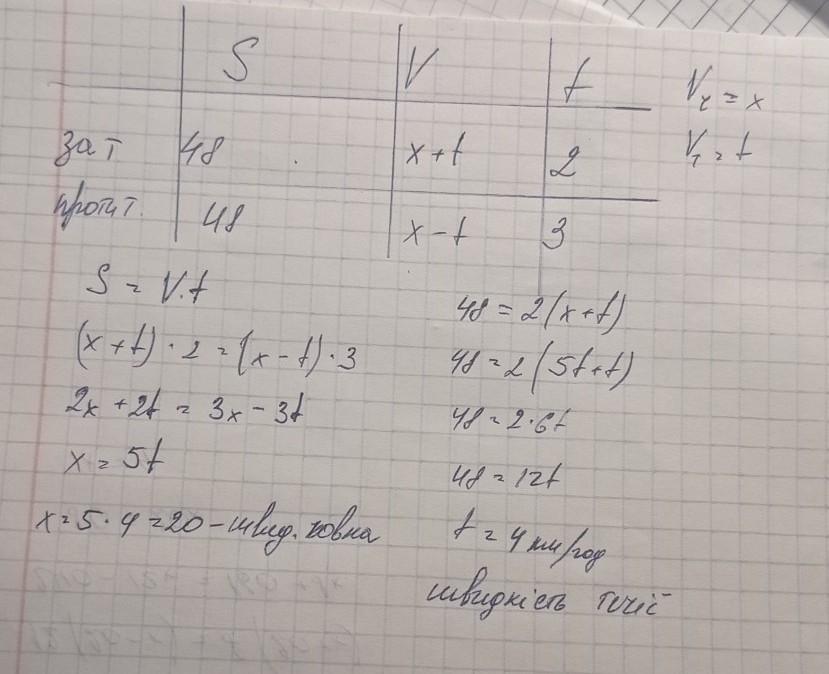 S V t
за т 48 x+t 2
проти т. 48 x-t 3
Vч = x
Vт = t
S = V.t
(x+t)·2=(x-t)·3
2x+2t = 3x-3t
x = 5t
x=5·4=20-швид. човна
48=2(x+t)
48=2(5t+t)
48=2·6t
48=12t
t=4 км/год
швидкість течії